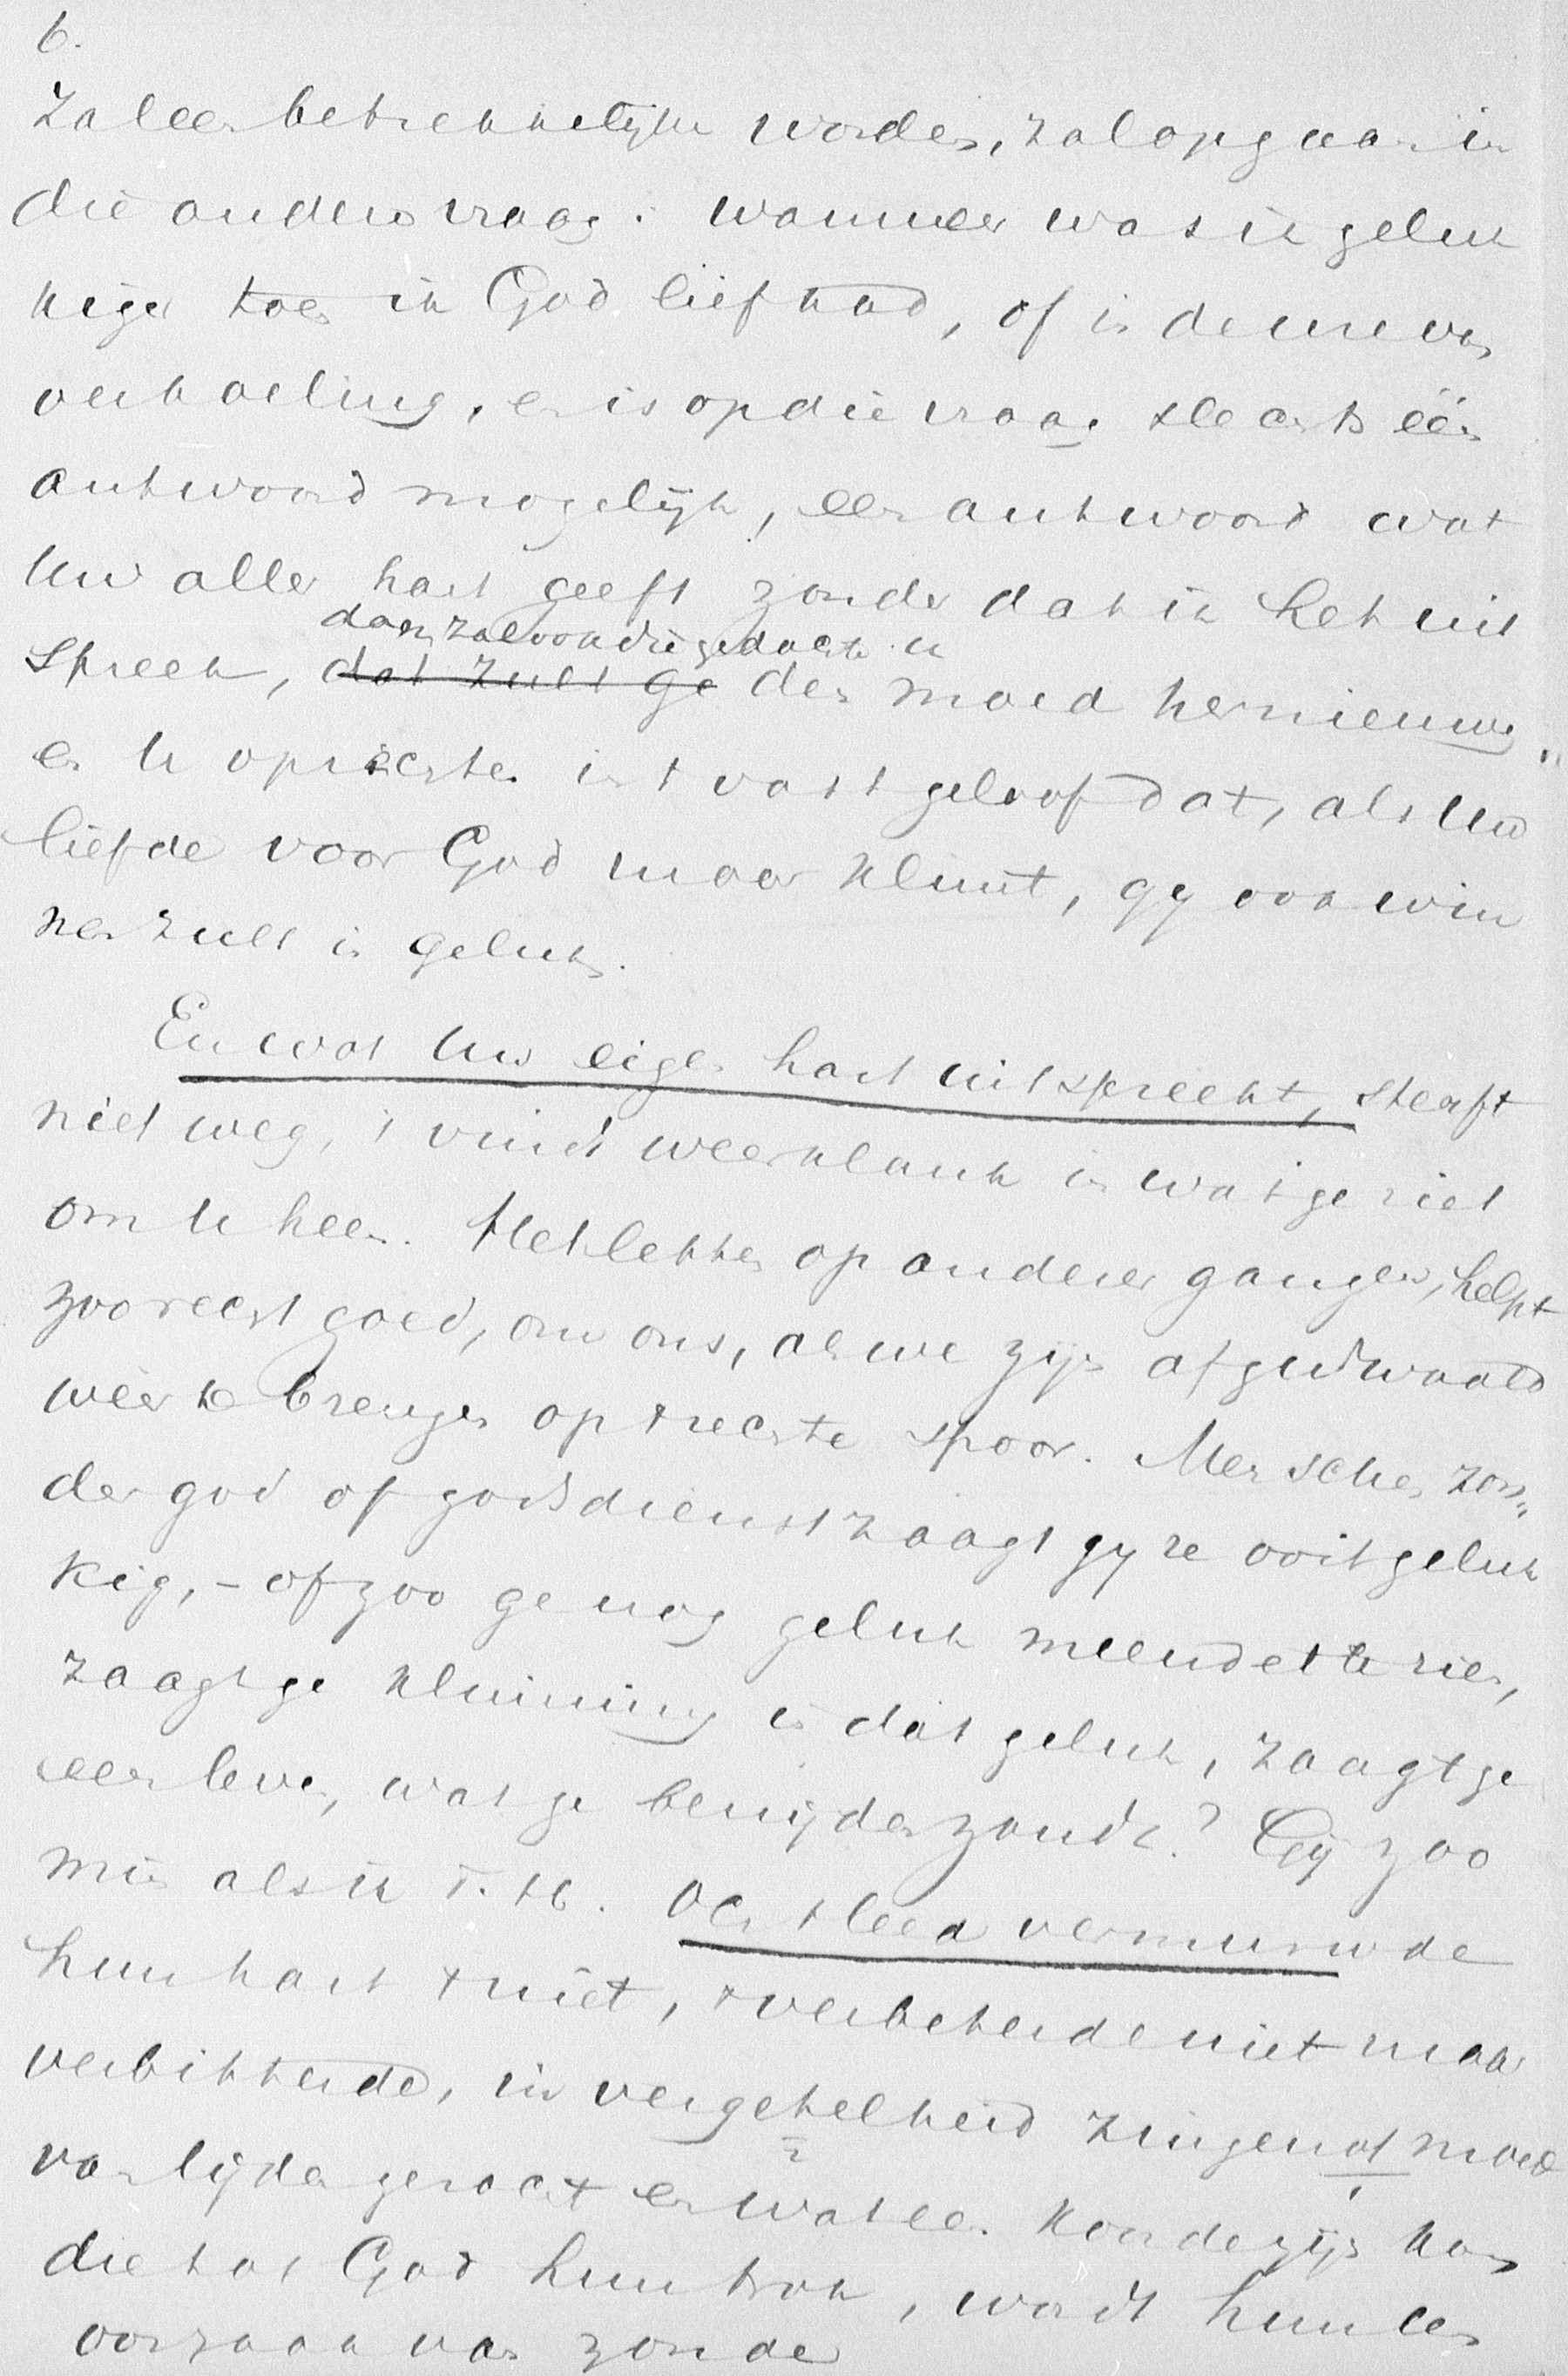 6.
zal een betrekkelijke worden, zal opgaan in
die andere vraag: wanneer was ik geluk
kiger toen ik God liefhad, of in de ure van
verkoeling, er is op die vraag slechts één
antwoord mogelijk, een antwoord wat
Uw aller hart geeft zonder dat ik het uit
dan zal ook die gedachte u
spreek, dat zult ge den moed hernieuwe„
en U oprichten in 't vast geloof dat, als Uw
liefde voor God maar klimt, gy ook win
nen zult in geluk.
En wat Uw eigen hart uitspreekt, sterft
niet weg, 't vindt weerklank in wat ge ziet
om U heen. Het letten op anderer gangen, helpt
zoo recht goed, om ons, als we zijn afgedwaald
weer te brengen op 't rechte spoor. Menschen zon„
der god of godsdienst zaagt gy ze ooit geluk
kig, – of zoo ge nog geluk meendet te zien,
zaagt ge klimming in dat geluk, zaagt ge
een leven, wat ge benijden zoudt? Gij zoo
min als ik T. H. Och 't leed vermurwde
hun hart niet, 't verbeterde niet maar
verbitterde, in vergetelheid zingend moed
van lijden gezocht en wat een koorde zijn kon
die tot God hun trok, wordt hun een
oorzaak van zonde